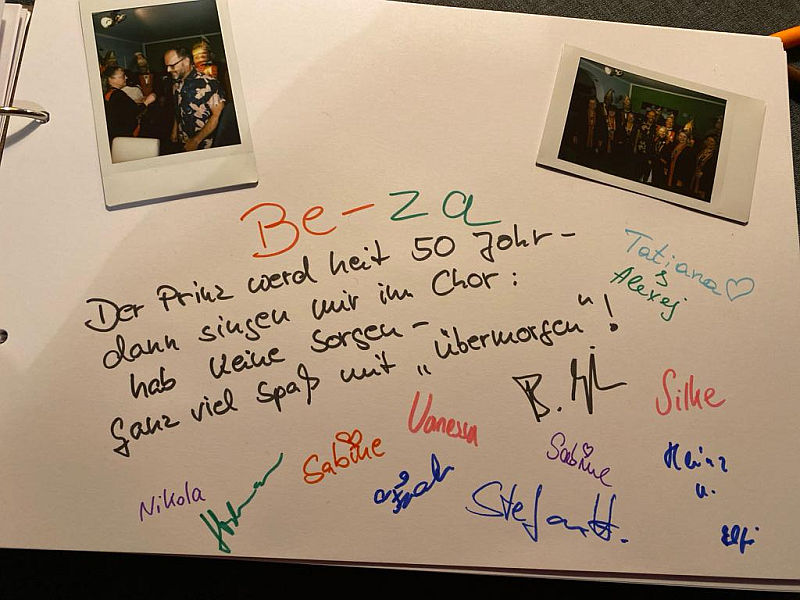 Be-za
Der Prinz werd heit 50 Johr-
dann singen mir im Chor:
hab keine Sorgen-
Ganz viel Spaß mit „übermorgen"!
Tatiana
&
Alexej
Silke
Vanessa
B.
Sabine
Sabine
Heinz
u.
Elfi
Nikola
Stefan H.